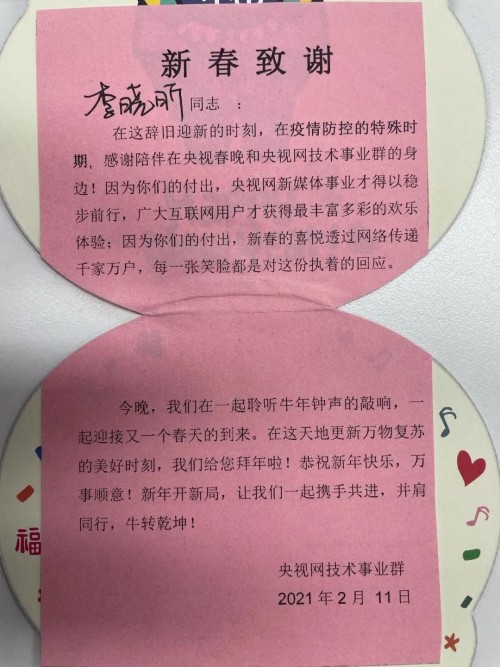 新春致谢
李晓昕同志 ：
在这辞旧迎新的时刻，在疫情防控的特殊时
期，感谢陪伴在央视春晚和央视网技术事业群的身
边！因为你们的付出，央视网新媒体事业才得以稳
步前行，广大互联网用户才获得最丰富多彩的欢乐
体验；因为你们的付出，新春的喜悦透过网络传递
千家万户，每一张笑脸都是对这份执着的回应。
今晚，我们在一起聆听牛年钟声的敲响，一
起迎接又一个春天的到来。在这天地更新万物复苏
的美好时刻，我们给您拜年啦！恭祝新年快乐，万
事顺意！新年开新局，让我们一起携手共进，并肩
同行，牛转乾坤！
福
央视网技术事业群
2021年2月 11日